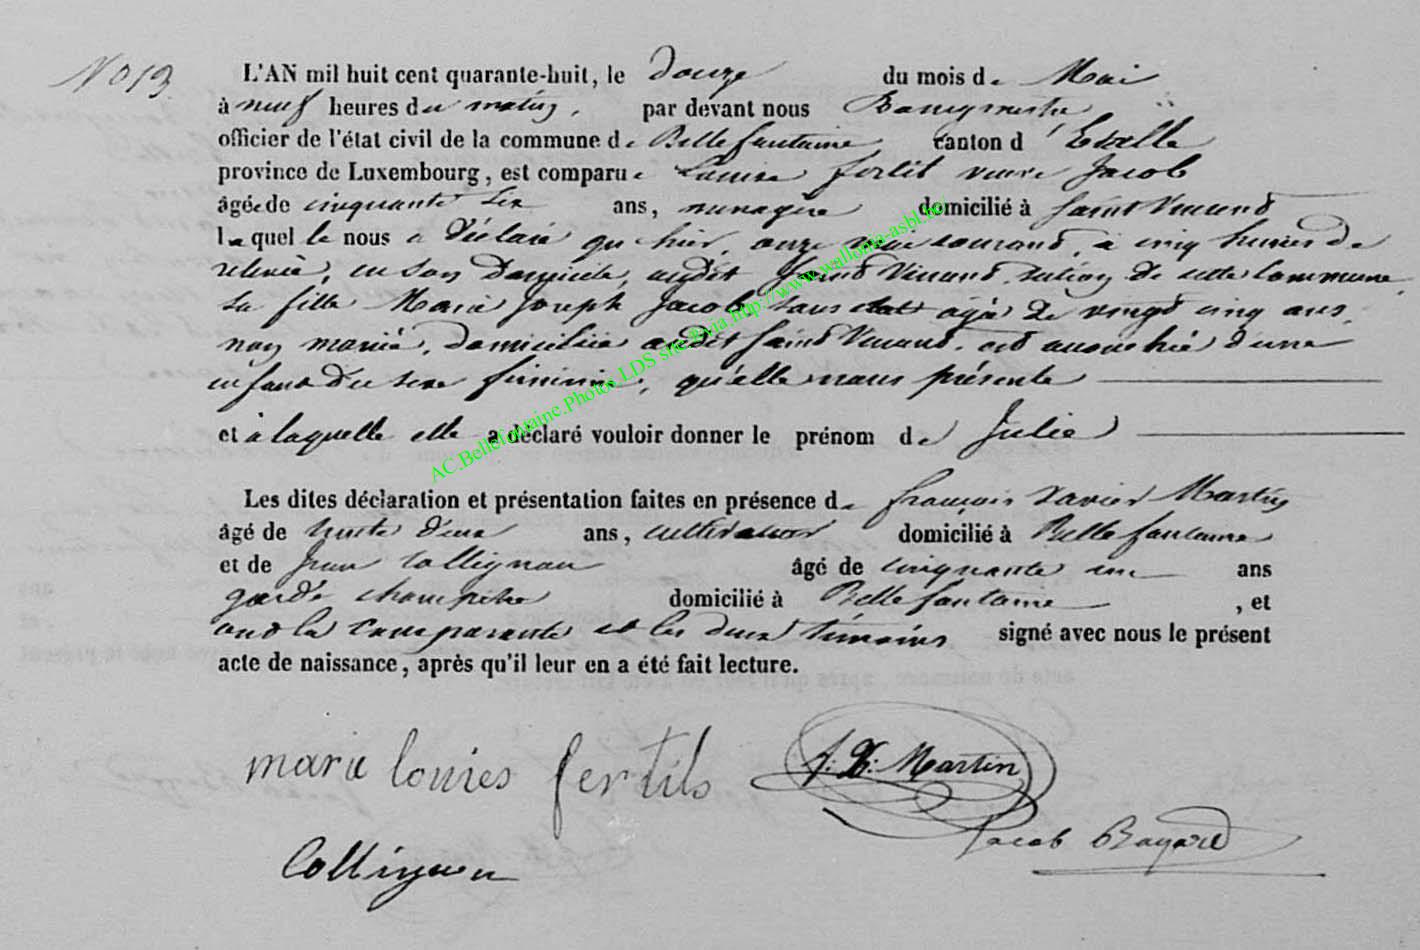 N° 13.
L'AN mil huit cent quarante-huit, le douze du mois de Mai
à neuf heures du matin, par devant nous Bourgmestre
officier de l'état civil de la commune de Bellefontaine canton d'Etalle
province de Luxembourg, est comparue Louise fertil veuve Jacob
âgée de cinquante six ans, ménagère domicilié à Saint Vincent
laquelle nous a déclaré qu'hier, onze mai courant, à cinq heures de
relevée, en son domicile, audit Saint Vincent, section de cette commune,
sa fille Marie Joseph Jacob sans état âgée de vingt cinq ans,
non mariée, domiciliée audit Saint Vincent, est accouchée d'une
enfant du sexe féminin, qu'elle nous présente
et à laquelle elle a déclaré vouloir donner le prénom de Julie
Les dites déclaration et présentation faites en présence de françois Xavier Martin
âgé de trente deux ans, cultivateur domicilié à Bellefontaine
et de Jean Collignon âgé de cinquante un ans
garde champêtre domicilié à Bellefontaine, et
ont la comparante et les deux témoins signé avec nous le présent
acte de naissance, après qu'il leur en a été fait lecture.
marie louies fertils f. X. Martin
Jacob Bayard
Collignon
AC.Bellefontaine.Photos LDS site & via http://www.wallonia-asbl.be/